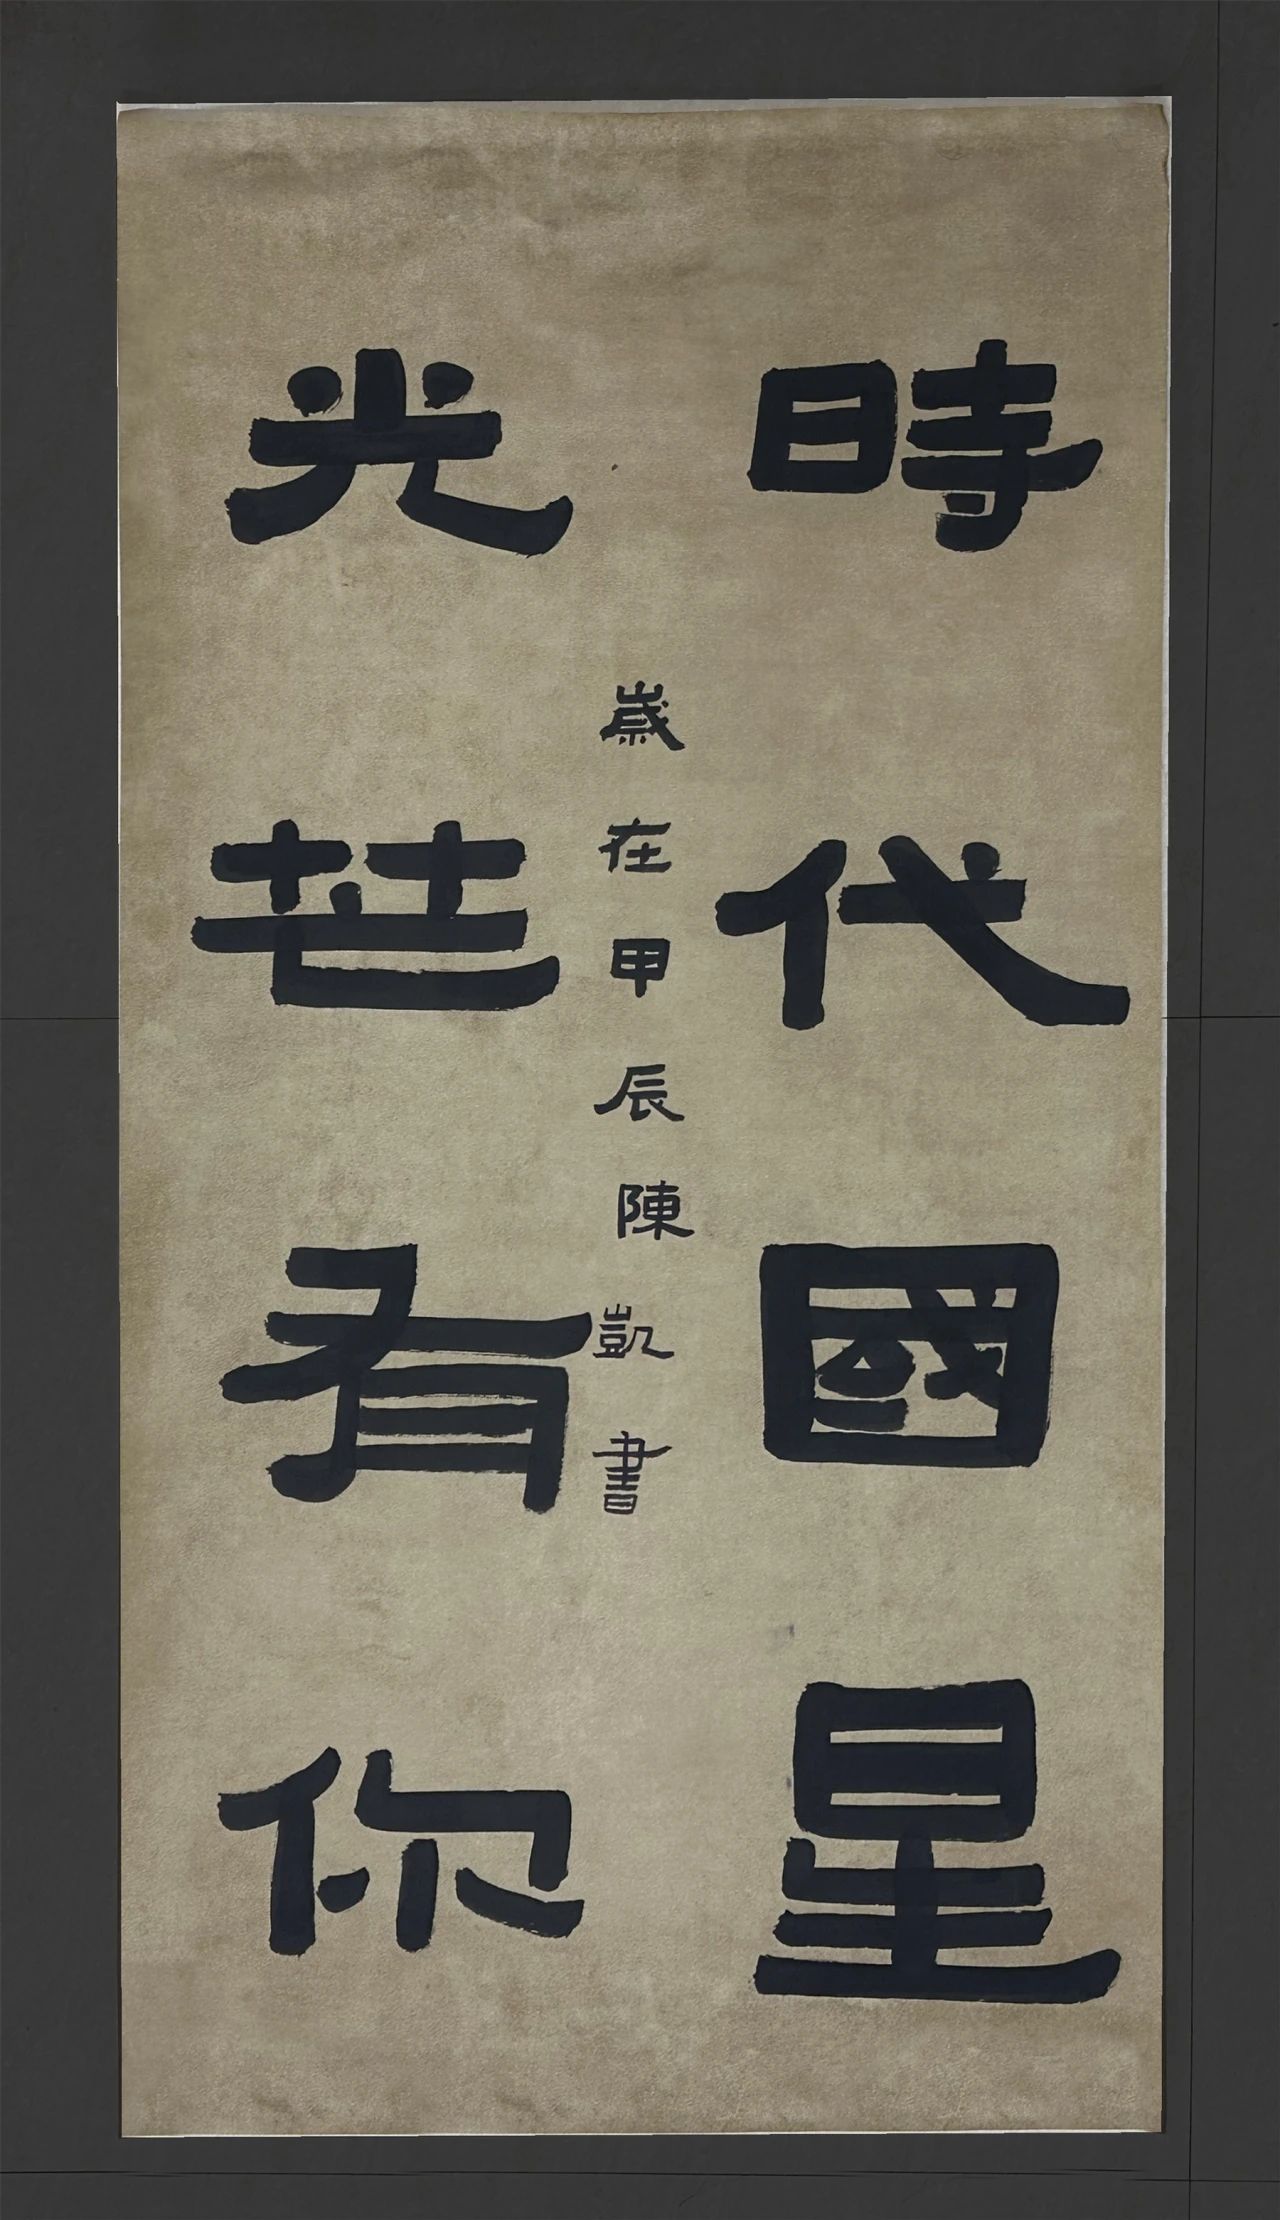 時代國星
光芒有你
歲在甲辰陳凱書